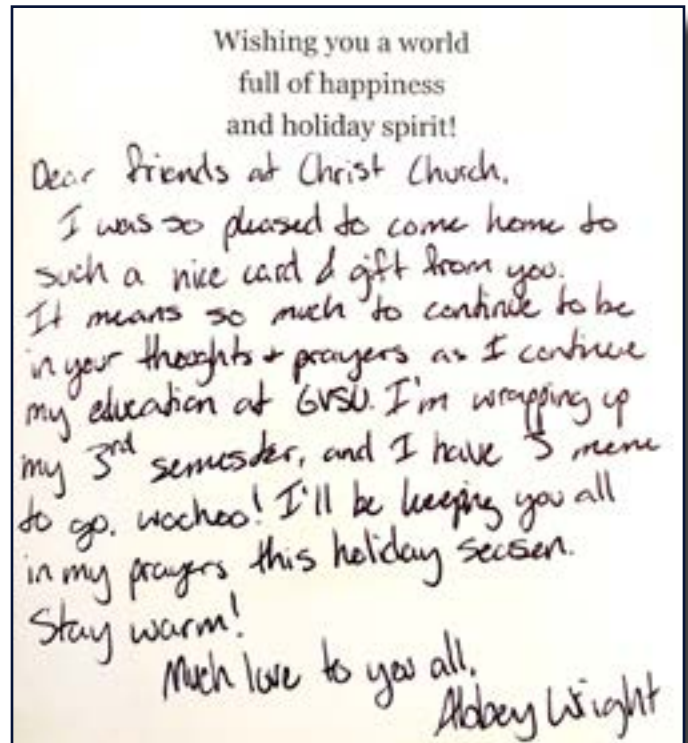 Wishing you a world
full of happiness
and holiday spirit!
Dear friends at Christ Church,
I was so pleased to come home to
such a nice card & gift from you.
It means so much to continue to be
in your thoughts + prayers as I continue
my education at GVSU. I'm wrapping up
my 3rd semester, and I have 5 more
to go. woohoo! I'll be keeping you all
in my prayers this holiday season.
Stay warm!
Much love to you all,
Abbey Wright